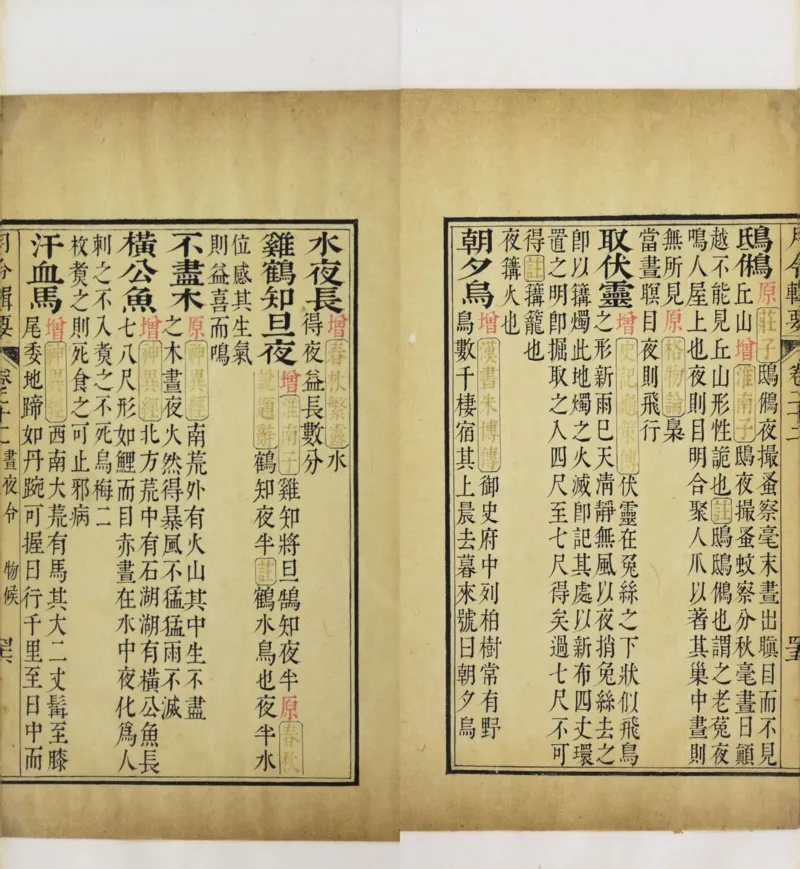 月令輯要 卷二十二
鴟鵂原莊子鴟鵂夜撮蚤察毫末晝出瞋目而不見
丘山增淮南子鴟夜撮蚤蚊察分秋毫晝日顚
越不能見丘山形性詭也註鴟鴟鵂也謂之老菟夜
鳴人屋上也夜則目明合聚人爪以著其巢中晝則
無所見原格物論梟
當晝瞑目夜則飛行
取伏靈增史記龜策傳伏靈在兔絲之下狀似飛鳥
之形新雨已天清靜無風以夜捎兔絲去之
卽以篝燭此地燭之火滅卽記其處以新布四丈環
置之明卽掘取之入四尺至七尺得矣過七尺不可
得註篝籠也
夜篝火也
朝夕鳥增漢書朱博傳御史府中列柏樹常有野
鳥數千棲宿其上晨去暮來號曰朝夕鳥
水夜長增春秋繁露水
得夜益長數分
雞鶴知旦夜增淮南子雞知將旦鵠知夜半原春秋
說題辭鶴知夜半註鶴水鳥也夜半水
位感其生氣
則益喜而鳴
不盡木原神異經南荒外有火山其中生不盡
之木晝夜火然得暴風不猛猛雨不滅
橫公魚增神異經北方荒中有石湖湖有橫公魚長
七八尺形如鯉而目赤晝在水中夜化爲人
刺之不入煑之不死烏梅二
枚煑之則死食之可止邪病
汗血馬增神異經西南大荒有馬其大二丈髯至膝
尾委地蹄如丹踠可握日行千里至日中而
月令輯要 卷二十二 晝夜令 物候